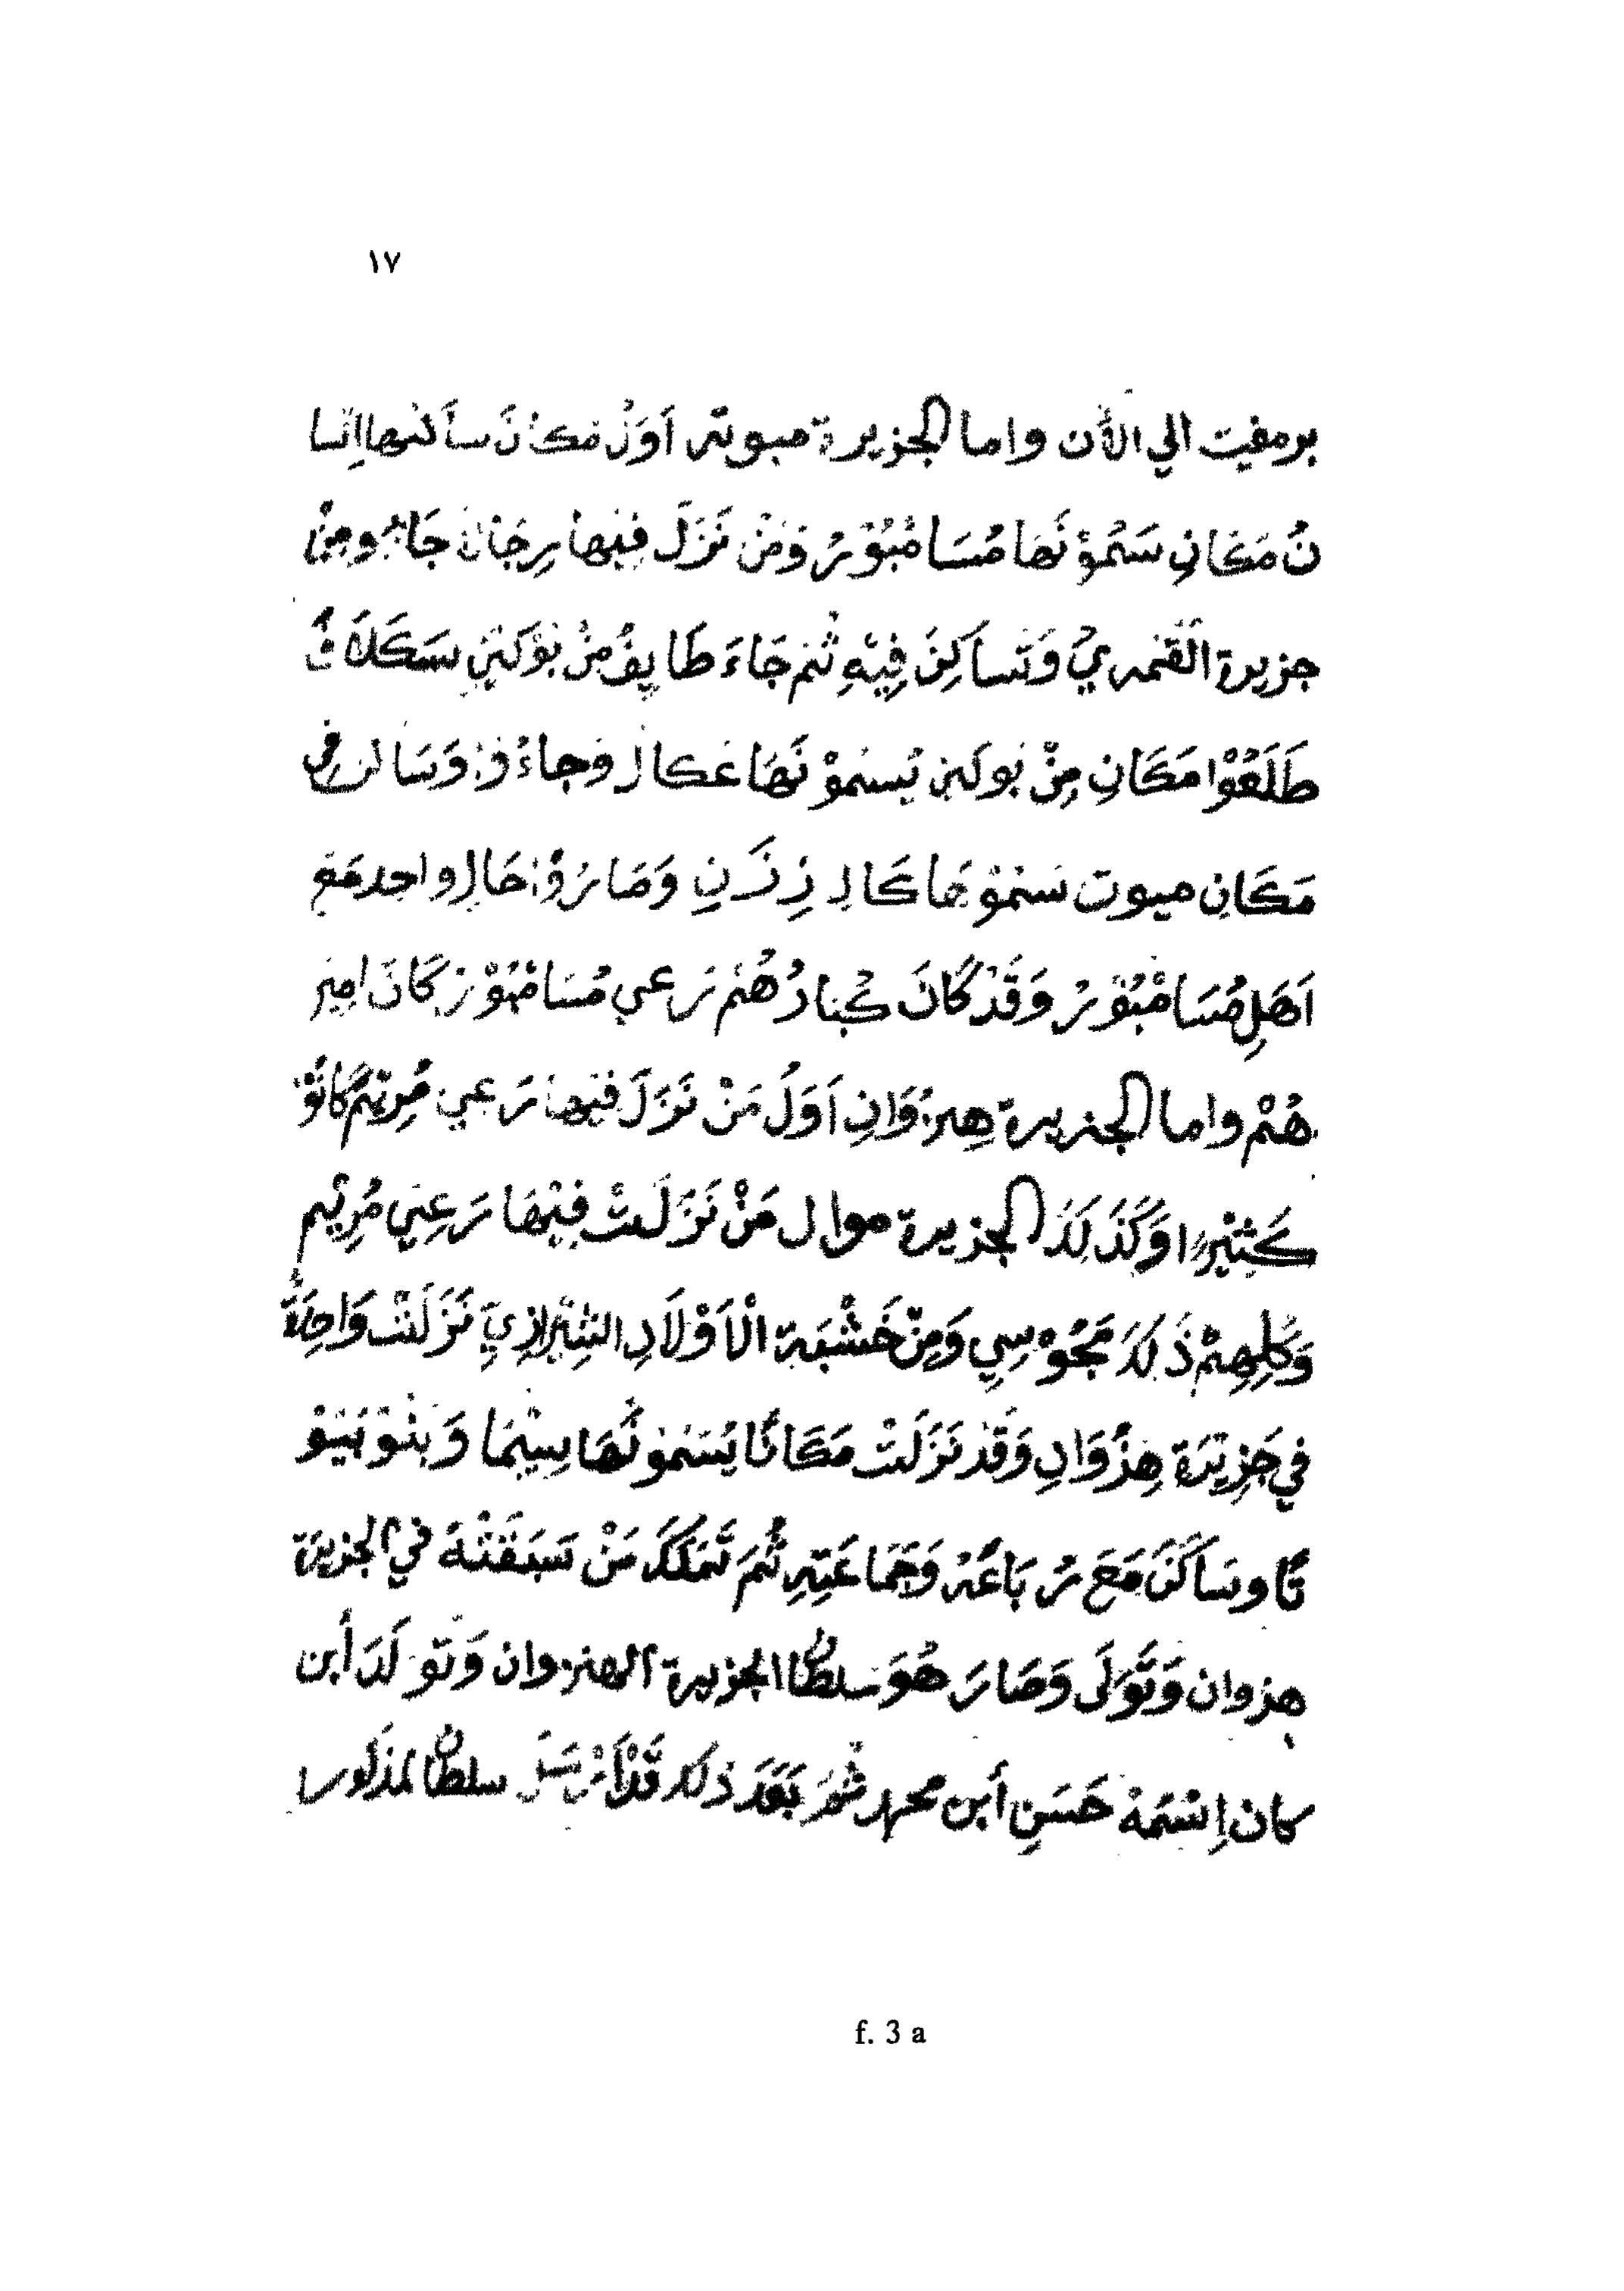 ١٧
برمفيت الي الأن واما الجزيرة ميوته أَوَلُ مكانَ سأكنها إنسا
نُ مَكَانِ سَمُوْنَهَا مُسَامْبُوْرُ وَمَنْ نَزَلَ فِيْهَا رِجَالٌ جَاؤُ ومِنْ
جزيرة القَمْرِيُ وَتَسَاكِنَ فِيْهِ ثُم جَاءَ طَايِفُ مِنْ بُوْكِيْنِ سَكَلَافُ
طَلَعُوْا مَكَانِ مِنْ بُوكين يُسمَوْنَهَا عَكَال وجاءُوْ وَسَاكن في
مَكَانِ ميوت سَمَوْهَا كَالِ وَصَارُوْا حَالِ واحد مَعَ
اَهَلِ مُسَامْبُوْرُ وَقَدْ كَانَ كِبَارُهُمْ رَعي مُسَامْبُوْرُ كَانَ امِير
هُمْ واما الجزيرة هِنزُوَانِ اَوَلُ مَنْ نَزَلَ فيها رَعي مُرِيم كَانُوْ
كَثِيْرًا وَكَذَلَكَ الجزيرة موال مَنْ نَزَلَتْ فِيْهَا رَعِي مُرِيْم
وَكُلِهِمْ ذَلكَ مَجُوْسِي وَمِنْ خَشْبَة الْأَوْلَادِ الشِيْرَازِيَ نَزَلَتْ وَاحِدَةٌ
في جَزِيْرَة هِنزُوَانِ وَقَدْ نَزَلَتْ مَكَانًا يُسَمَوْنُهَا سِيْمَا وَبِنْوَ بَيْتَوْ
تًا وسَاكَنَ مَعَ رُبَاعَهُ وَجَمَاعَتِهِ ثُمَ تَمَلَكَ مَنْ سَبَقَتْهَ في الجزيرة
هزوان وَتَوَلَى وَصَارَ هُوَ سلطان الجزيرة الهنزوان وَتَوَلَدَ أبن
كان إسْمُهُ حَسَنِ أبن محمد ثُمَ بَعَدَ ذلك قَدْ سلطان المذكور
f. 3 a